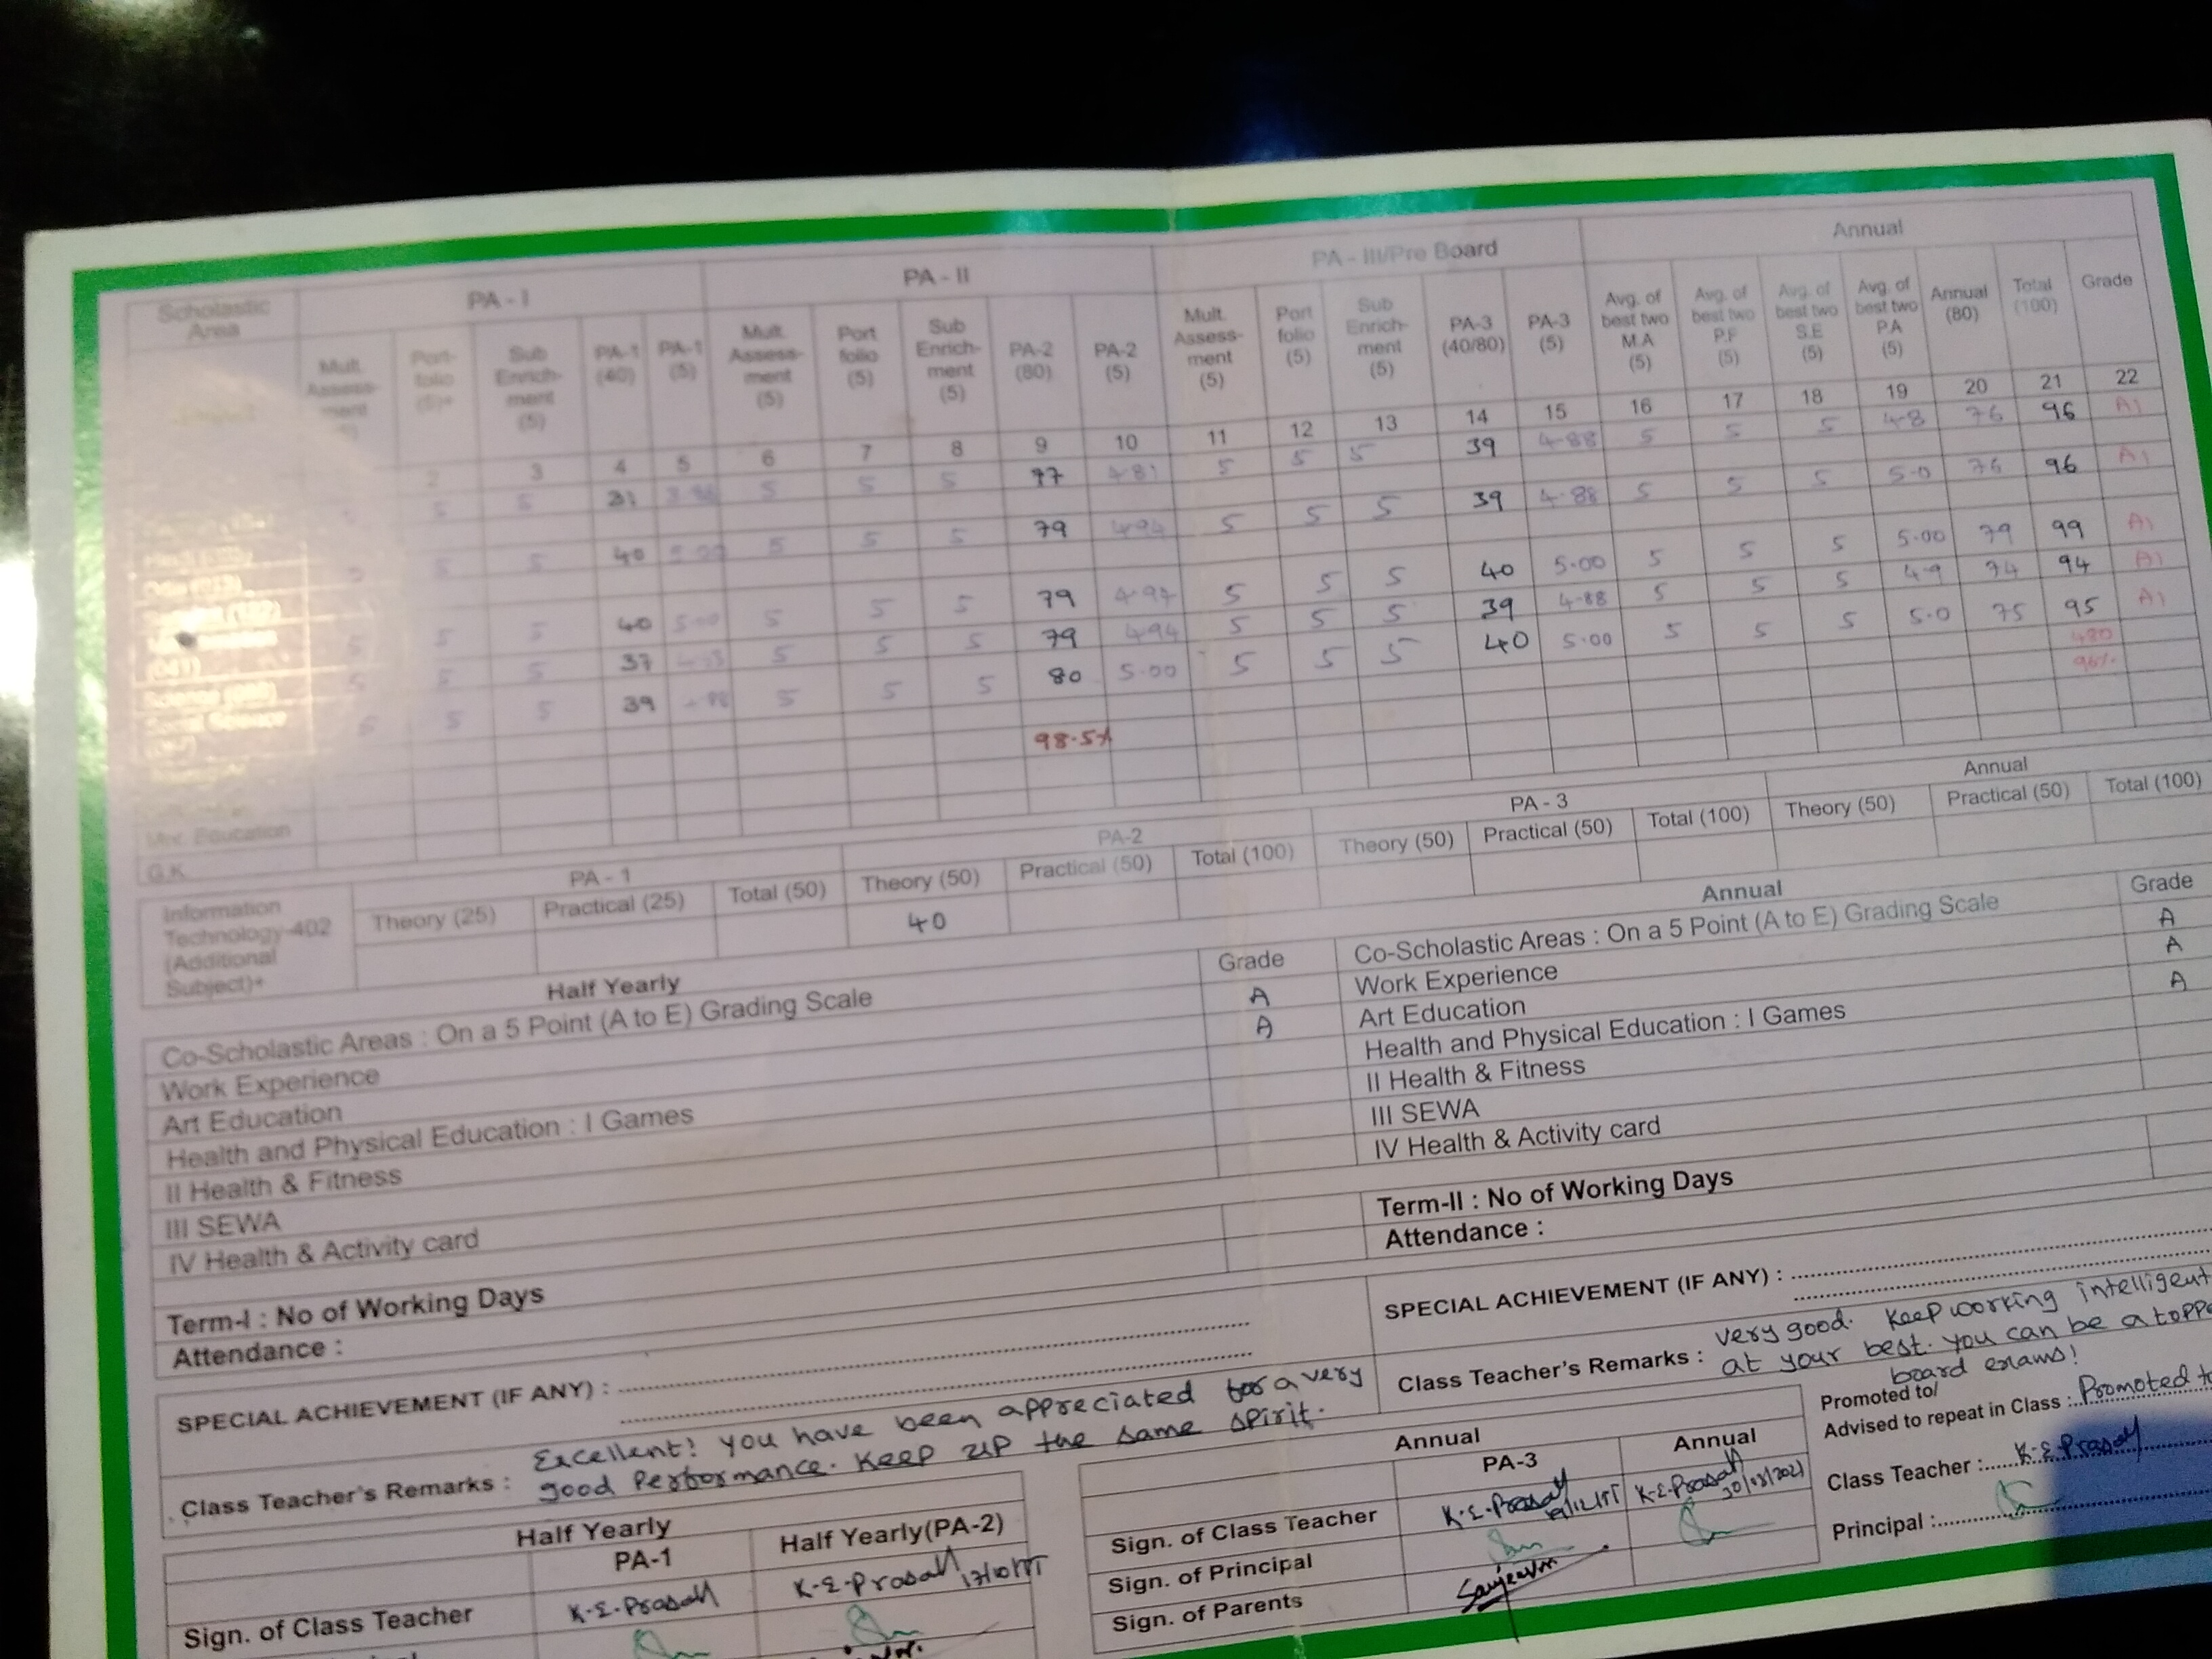 Scholastic Area PA - I PA - II PA - III/Pre Board Annual
Mult. Assess-ment Port-folio Sub Enrich-ment (5) PA-1 (40) PA-1 (5) Mult. Assess-ment (5) Port folio (5) Sub Enrich-ment (5) PA-2 (80) PA-2 (5) Mult. Assess-ment (5) Port folio (5) Sub Enrich-ment (5) PA-3 (40/80) PA-3 (5) Avg. of best two M.A (5) Avg. of best two P.F (5) Avg. of best two S.E (5) Avg. of best two P.A (5) Annual (80) Total (100) Grade
2 3 4 5 6 7 8 9 10 11 12 13 14 15 16 17 18 19 20 21 22
5 5 31 5 5 5 77 4.81 5 5 5 39 4.88 5 5 5 4.8 76 96 A1
5 5 40 5.00 5 5 5 79 4.94 5 5 5 39 4.88 5 5 5 5.0 76 96 A1
5 5 40 5.00 5 5 5 79 4.94 5 5 5 40 5.00 5 5 5 5.00 79 99 A1
5 5 37 5 5 5 79 4.94 5 5 5 39 4.88 5 5 5 4.9 74 94 A1
5 5 39 5 5 5 80 5.00 5 5 5 40 5.00 5 5 5 5.0 75 95 A1
480
98.5% 96%
Education
G.K.
Information Technology-402 (Additional Subject)+ PA - 1 PA-2 PA - 3 Annual
Theory (25) Practical (25) Total (50) Theory (50) Practical (50) Total (100) Theory (50) Practical (50) Total (100) Theory (50) Practical (50) Total (100)
40
Half Yearly
Co-Scholastic Areas : On a 5 Point (A to E) Grading Scale Grade
Work Experience A
Art Education A
Health and Physical Education : I Games
II Health & Fitness
III SEWA
IV Health & Activity card
Term-I : No of Working Days
Attendance :
SPECIAL ACHIEVEMENT (IF ANY) :
Class Teacher's Remarks : Excellent! You have been appreciated for a very
good Performance. Keep up the same spirit.
Half Yearly
PA-1 Half Yearly(PA-2)
Sign. of Class Teacher K.E.Prasad K.E.Prasad
Annual
Co-Scholastic Areas : On a 5 Point (A to E) Grading Scale Grade
Work Experience A
Art Education A
Health and Physical Education : I Games A
II Health & Fitness
III SEWA
IV Health & Activity card
Term-II : No of Working Days
Attendance :
SPECIAL ACHIEVEMENT (IF ANY) :
Class Teacher's Remarks : Very good. Keep working intelligent
at your best. You can be a toppe
board exams!
Annual
PA-3 Annual
Sign. of Class Teacher K.E.Prasad K.E.Prasad 30/03/2021
Sign. of Principal
Sign. of Parents
Promoted to/
Advised to repeat in Class : Promoted to
Class Teacher : K.E.Prasad
Principal :